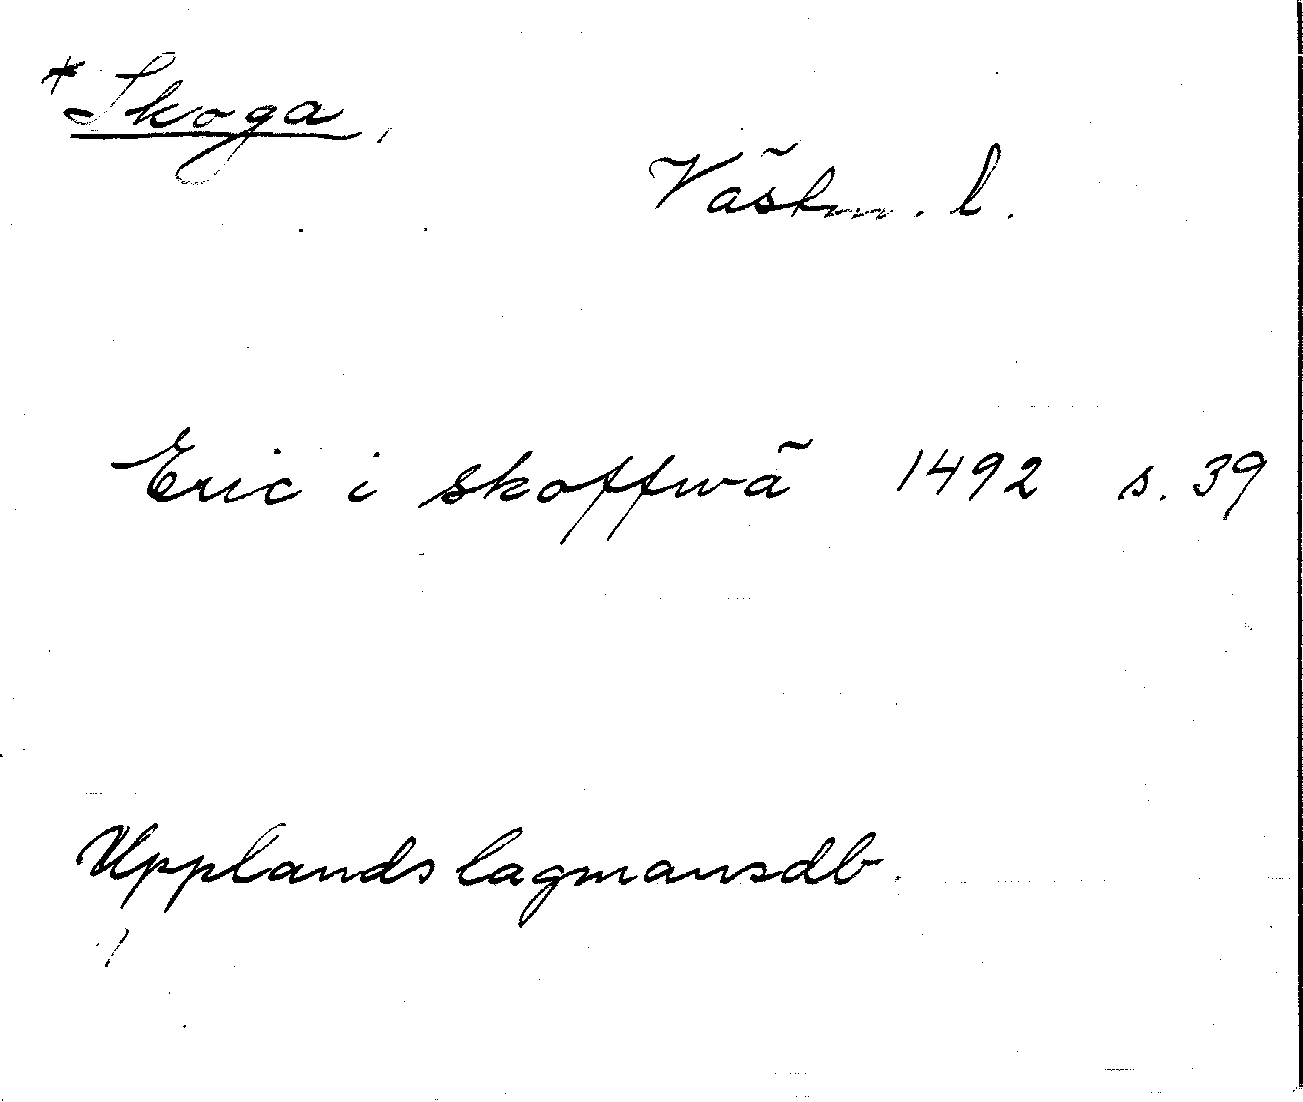 *Skoga,
Västm. l.
Eric i skoffwä 1492 s. 39
Upplands lagmansdb.